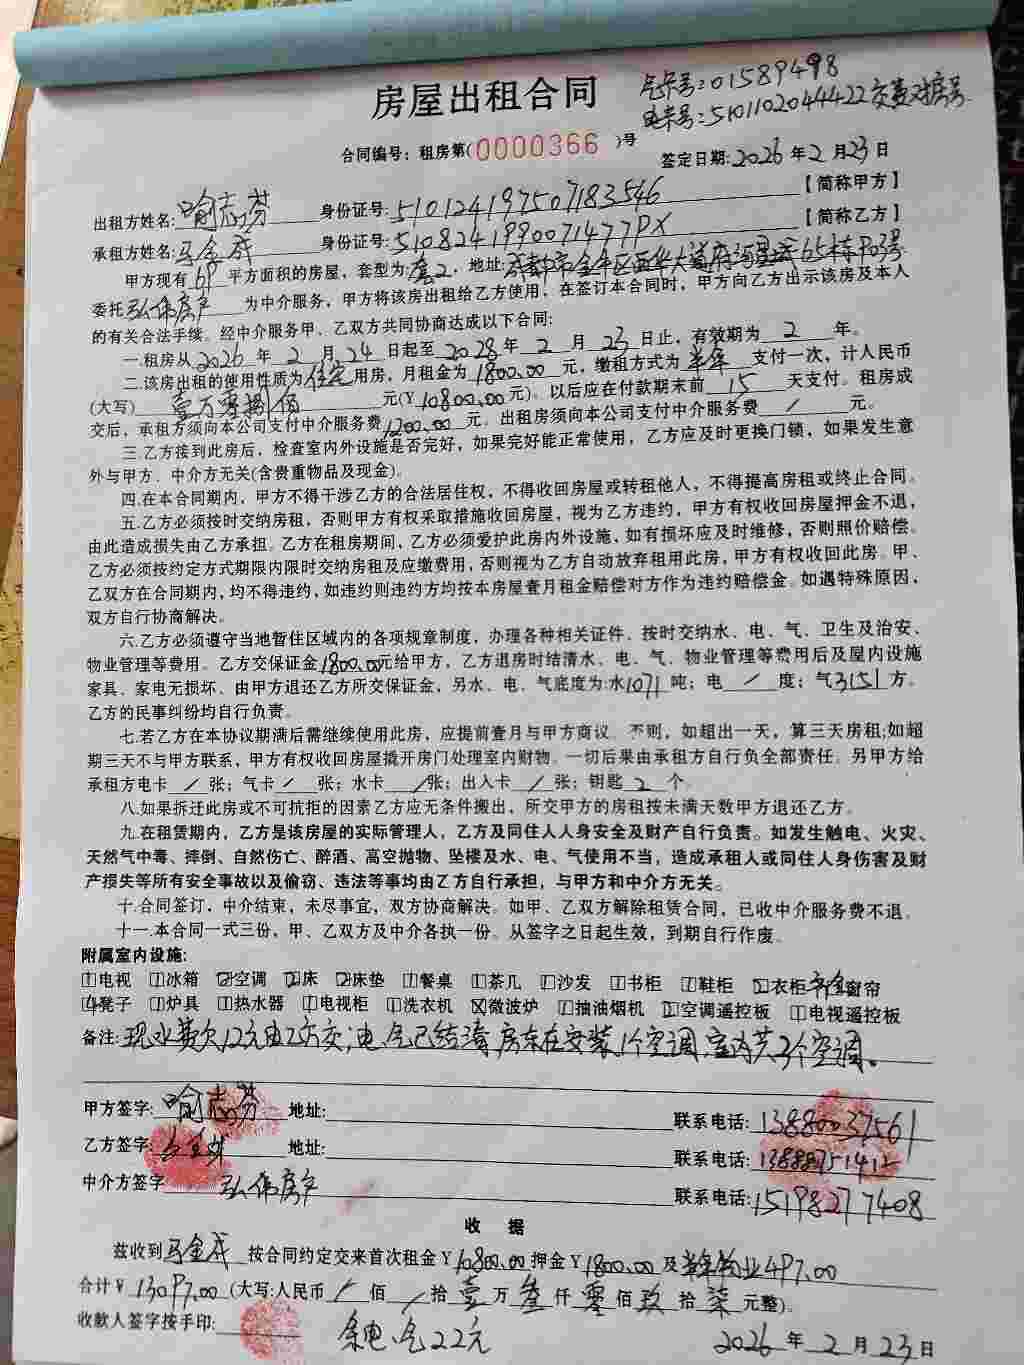 房屋出租合同
气卡号：01589498
电卡号：5101102044422交费对房号
合同编号：租房第(0000366)号
签定日期:2026年2月23日
出租方姓名:喻志芬 身份证号:510124197507183546 【简称甲方】
承租方姓名:马金成 身份证号: 【简称乙方】
甲方现有 平方面积的房屋，套型为:套2，地址:成都市金牛区西华大道
委托弘伟房产为中介服务，甲方将该房出租给乙方使用，在签订本合同时，甲方向乙方出示该房及本人
的有关合法手续。经中介服务甲、乙双方共同协商达成以下合同:
一.租房从2026年2月24日起至2028年2月23日止，有效期为2年。
二.该房出租的使用性质为住宅用房，月租金为1800.00元，缴租方式为半年支付一次，计人民币
(大写)壹万零捌佰元(￥10800.00元)。以后应在付款期末前15天支付。租房成
交后，承租方须向本公司支付中介服务费1200.00元。出租房须向本公司支付中介服务费/元。
三.乙方接到此房后，检查室内外设施是否完好，如果完好能正常使用，乙方应及时更换门锁，如果发生意
外与甲方、中介方无关(含贵重物品及现金)。
四.在本合同期内，甲方不得干涉乙方的合法居住权，不得收回房屋或转租他人，不得提高房租或终止合同。
五.乙方必须按时交纳房租，否则甲方有权采取措施收回房屋，视为乙方违约，甲方有权收回房屋押金不退，
由此造成损失由乙方承担。乙方在租房期间，乙方必须爱护此房内外设施，如有损坏应及时维修，否则照价赔偿。
乙方必须按约定方式期限内限时交纳房租及应缴费用，否则视为乙方自动放弃租用此房，甲方有权收回此房。甲、
乙双方在合同期内，均不得违约，如违约则违约方均按本房屋壹月租金赔偿对方作为违约赔偿金。如遇特殊原因，
双方自行协商解决。
六.乙方必须遵守当地暂住区域内的各项规章制度，办理各种相关证件、按时交纳水、电、气、卫生及治安、
物业管理等费用。乙方交保证金1800.00元给甲方，乙方退房时结清水、电、气、物业管理等费用后及屋内设施
家具、家电无损坏、由甲方退还乙方所交保证金，另水、电、气底度为:水1071吨；电/度；气3151方。
乙方的民事纠纷均自行负责。
七.若乙方在本协议期满后需继续使用此房，应提前壹月与甲方商议。否则，如超出一天，算三天房租;如超
期三天不与甲方联系，甲方有权收回房屋撬开房门处理室内财物。一切后果由承租方自行负全部责任。另甲方给
承租方电卡/张；气卡/张；水卡/张；出入卡/张；钥匙2个。
八.如果拆迁此房或不可抗拒的因素乙方应无条件搬出，所交甲方的房租按未满天数甲方退还乙方。
九.在租赁期内，乙方是该房屋的实际管理人，乙方及同住人人身安全及财产自行负责。如发生触电、火灾、
天然气中毒、摔倒、自然伤亡、醉酒、高空抛物、坠楼及水、电、气使用不当，造成承租人或同住人身伤害及财
产损失等所有安全事故以及偷窃、违法等事均由乙方自行承担，与甲方和中介方无关。
十.合同签订，中介结束，未尽事宜，双方协商解决。如甲、乙双方解除租赁合同，已收中介服务费不退。
十一.本合同一式三份，甲、乙双方及中介各执一份。从签字之日起生效，到期自行作废。
附属室内设施:
电视 冰箱 空调 床 床垫 餐桌 茶几 沙发 书柜 鞋柜 衣柜 窗帘
凳子 炉具 热水器 电视柜 洗衣机 微波炉 抽油烟机 空调遥控板 电视遥控板
备注:现水费欠12元由乙方交，电气已结清，房东在安装1个空调，室内共3个空调。
甲方签字:喻志芬 地址: 联系电话:13880037561
乙方签字: 地址: 联系电话:
中介方签字 弘伟房产 联系电话:15198277408
收 据
兹收到马金成按合同约定交来首次租金￥10800.00押金￥1800.00及半年物业497.00
合计￥13097.00(大写:人民币/佰/拾壹万叁仟零佰玖拾柒元整)。
收款人签字按手印: 余电、气22元 2026年2月23日